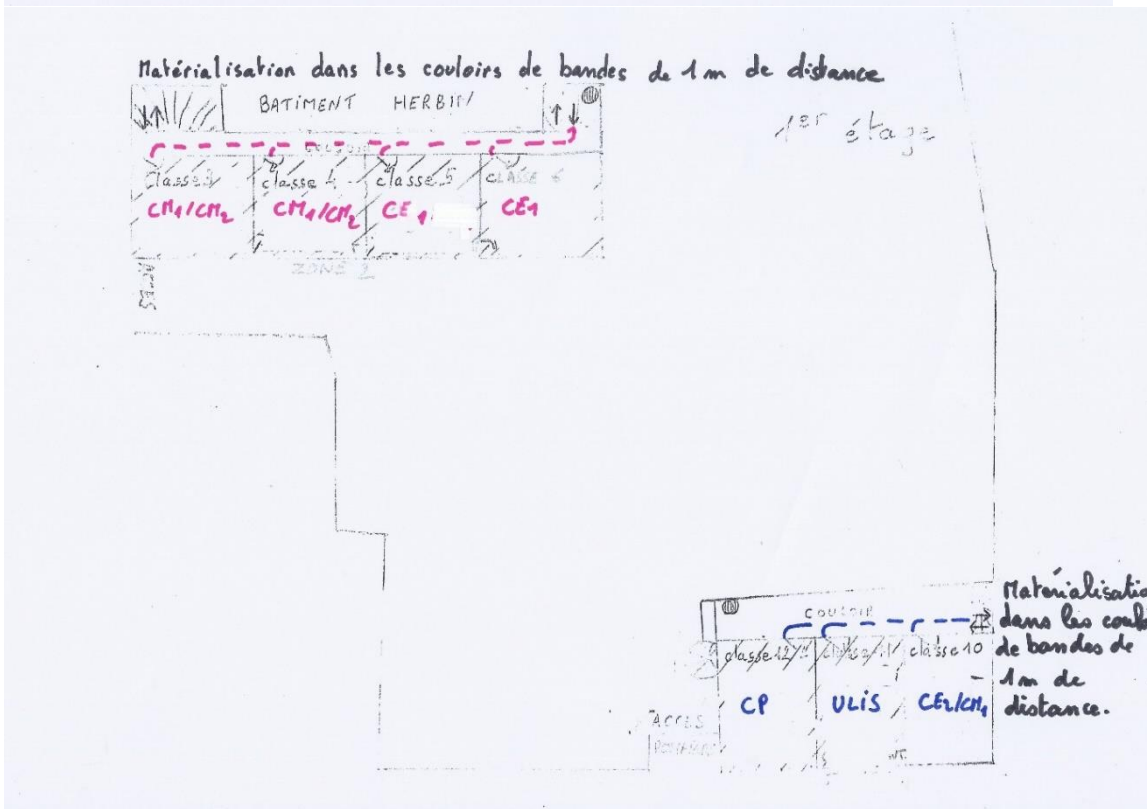 Matérialisation dans les couloirs de bandes de 1 m de distance
BATIMENT HERBIN
1er étage
COULOIR
classe 3 classe 4 classe 5 CLASSE 6
CM1/CM2 CM1/CM2 CE1 CE1
ZONE 2
ACCES
COULOIR
classe 12 classe 11 classe 10
CP ULIS CE2/CM1
ACCES
POMPIERS
Matérialisatio
dans les coul
de bandes de
1m de
distance.